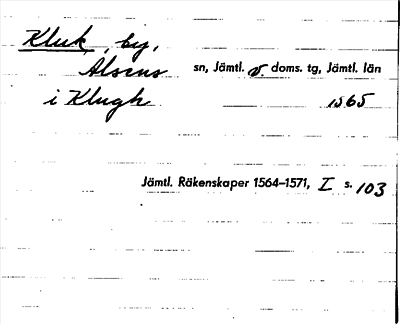 Kluk, by,
Alsens sn, Jämtl. v. doms. tg, Jämtl. län
i Klugh 1565
Jämtl. Räkenskaper 1564–1571, I s. 103